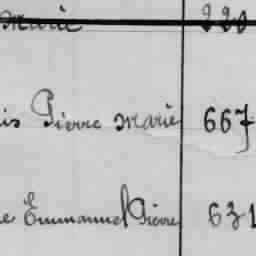 Marie 220
is Pierre Marie 667
e Emmanuel Pierre 631